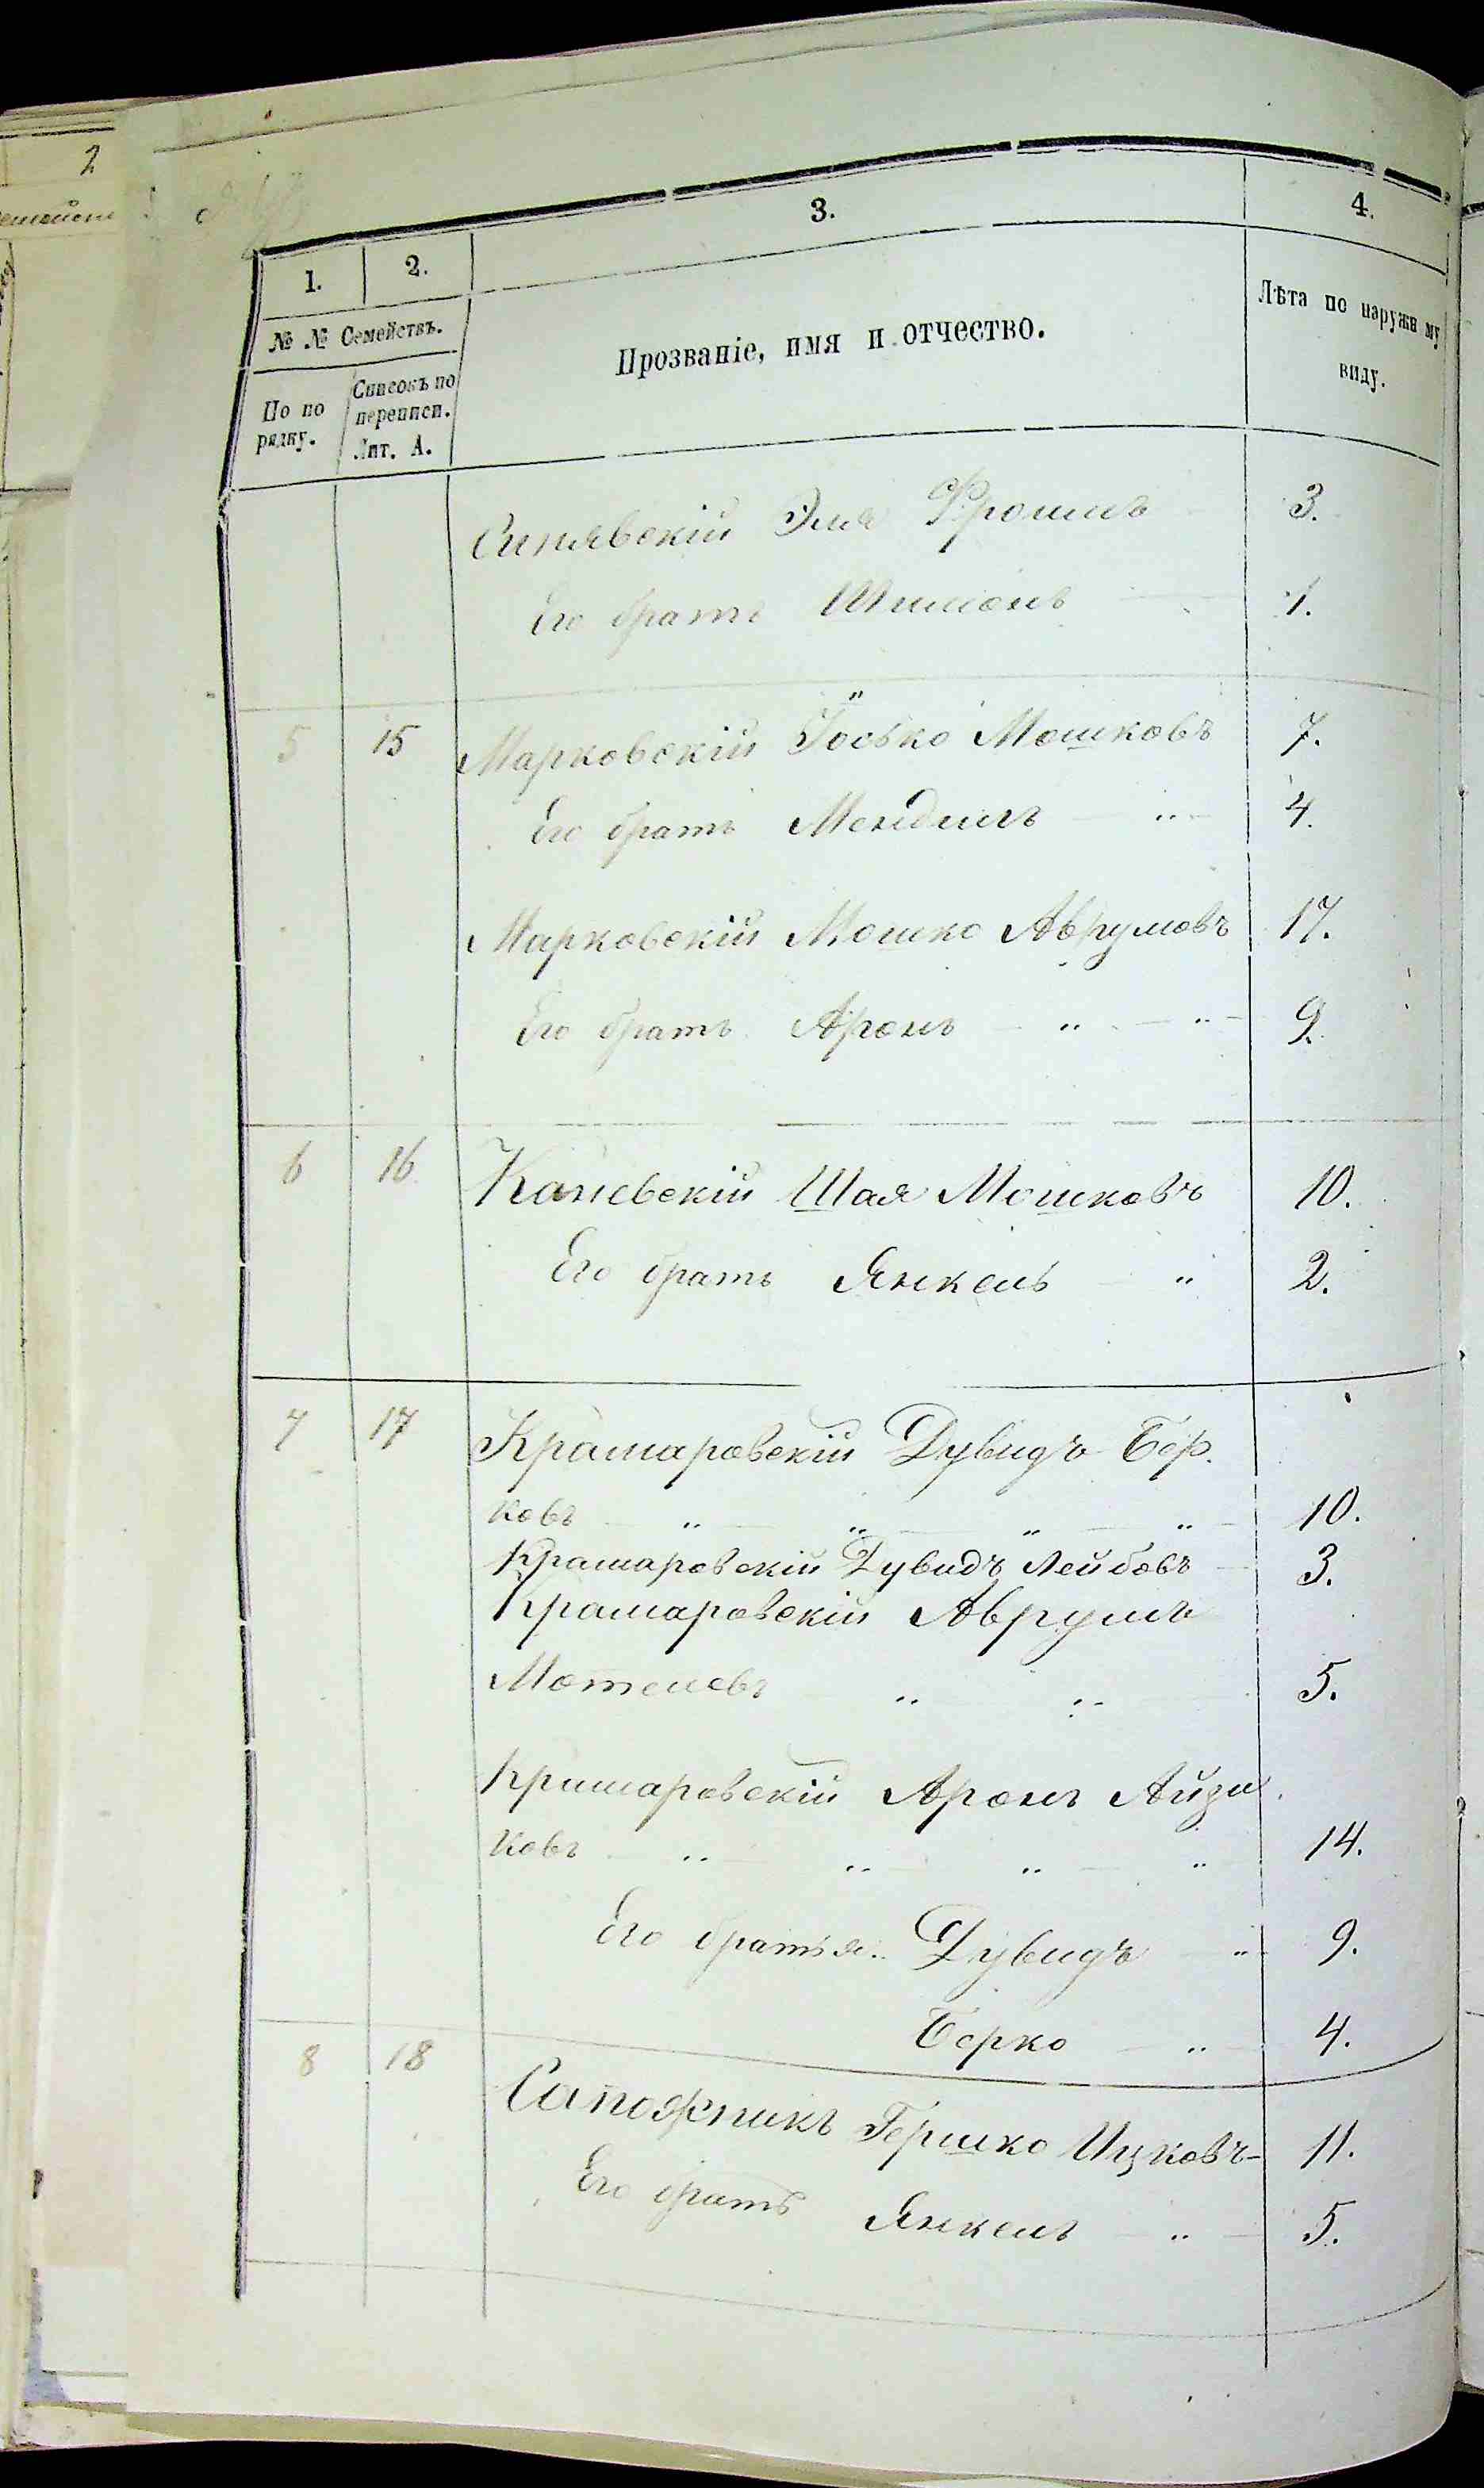 2
1.
2.
3.
4.
№ № Семействъ.
По по
рядку.
Списокъ по
переписи.
Лит. А.
Прозваніе, имя и отчество.
Лѣта по наружн му
виду.
Синявскій Эля Фроимъ 3.
Его братъ Шимонъ 1.
5 15 Марковскій Іосько Мошковъ 7.
Его братъ Мендель " 4.
Марковскій Мошко Аврумовъ 17.
Его братъ Аронъ " " 9.
6 16 Каневскій Шая Мошковъ 10.
Его братъ Янкель " 2.
7 17 Крамаровскій Дувидъ Бер.
ковъ " " " " 10.
Крамаровскій Дувидъ Лейбовъ 3.
Крамаровскій Аврумъ
Мотелевъ " " 5.
Крамаровскій Аронъ Айзи.
ковъ " " " " 14.
Его братья: Дувидъ " 9.
Берко " 4.
8 18 Сапожникъ Гершко Ицковъ 11.
Его братъ Янкель " 5.